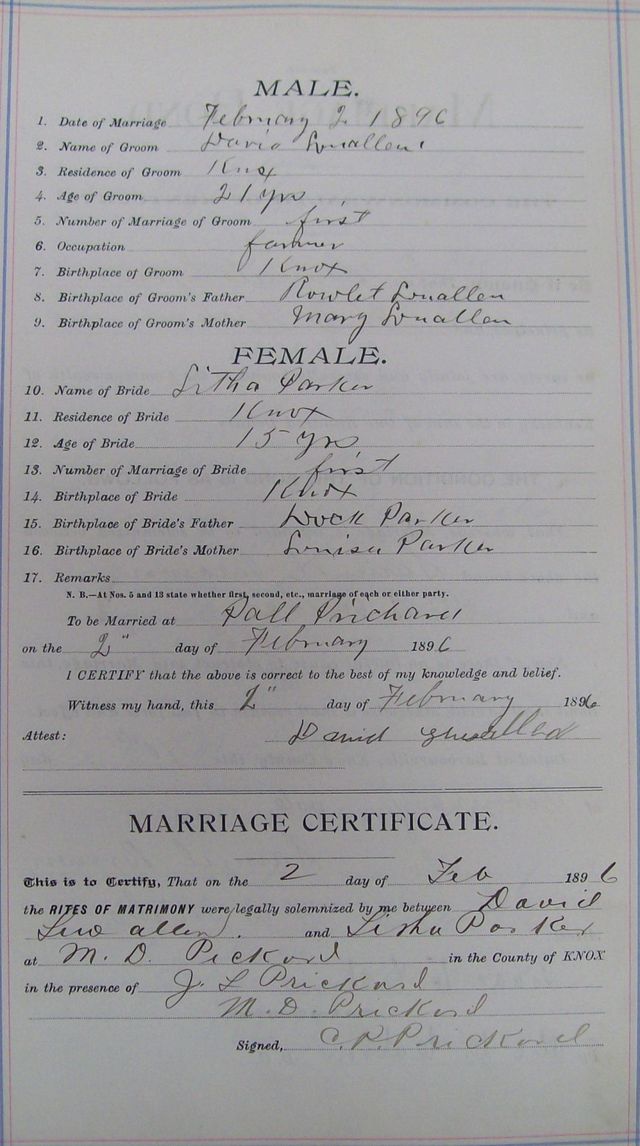 MALE.
1. Date of Marriage February 2 1896
2. Name of Groom David Lwallen
3. Residence of Groom Knox
4. Age of Groom 21 yrs
5. Number of Marriage of Groom first
6. Occupation farmer
7. Birthplace of Groom Knox
8. Birthplace of Groom's Father Rowlet Lwallen
9. Birthplace of Groom's Mother Mary Lwallen
FEMALE.
10. Name of Bride Litha Parker
11. Residence of Bride Knox
12. Age of Bride 15 yrs
13. Number of Marriage of Bride first
14. Birthplace of Bride Knox
15. Birthplace of Bride's Father Dock Parker
16. Birthplace of Bride's Mother Louisa Parker
17. Remarks
N. B.—At Nos. 5 and 13 state whether first, second, etc., marriage of each or either party.
To be Married at Pall Prichard
on the 2" day of February 1896
I CERTIFY that the above is correct to the best of my knowledge and belief.
Witness my hand, this 2" day of February 1896
Attest: David
MARRIAGE CERTIFICATE.
This is to Certify, That on the 2 day of Feb 1896
the RITES OF MATRIMONY were legally solemnized by me between David
Lew allen. and Litha Parker
at M. D. Pickard in the County of KNOX
in the presence of J. L Prickard
M. D. Prickard
Signed, C. P. Prickard